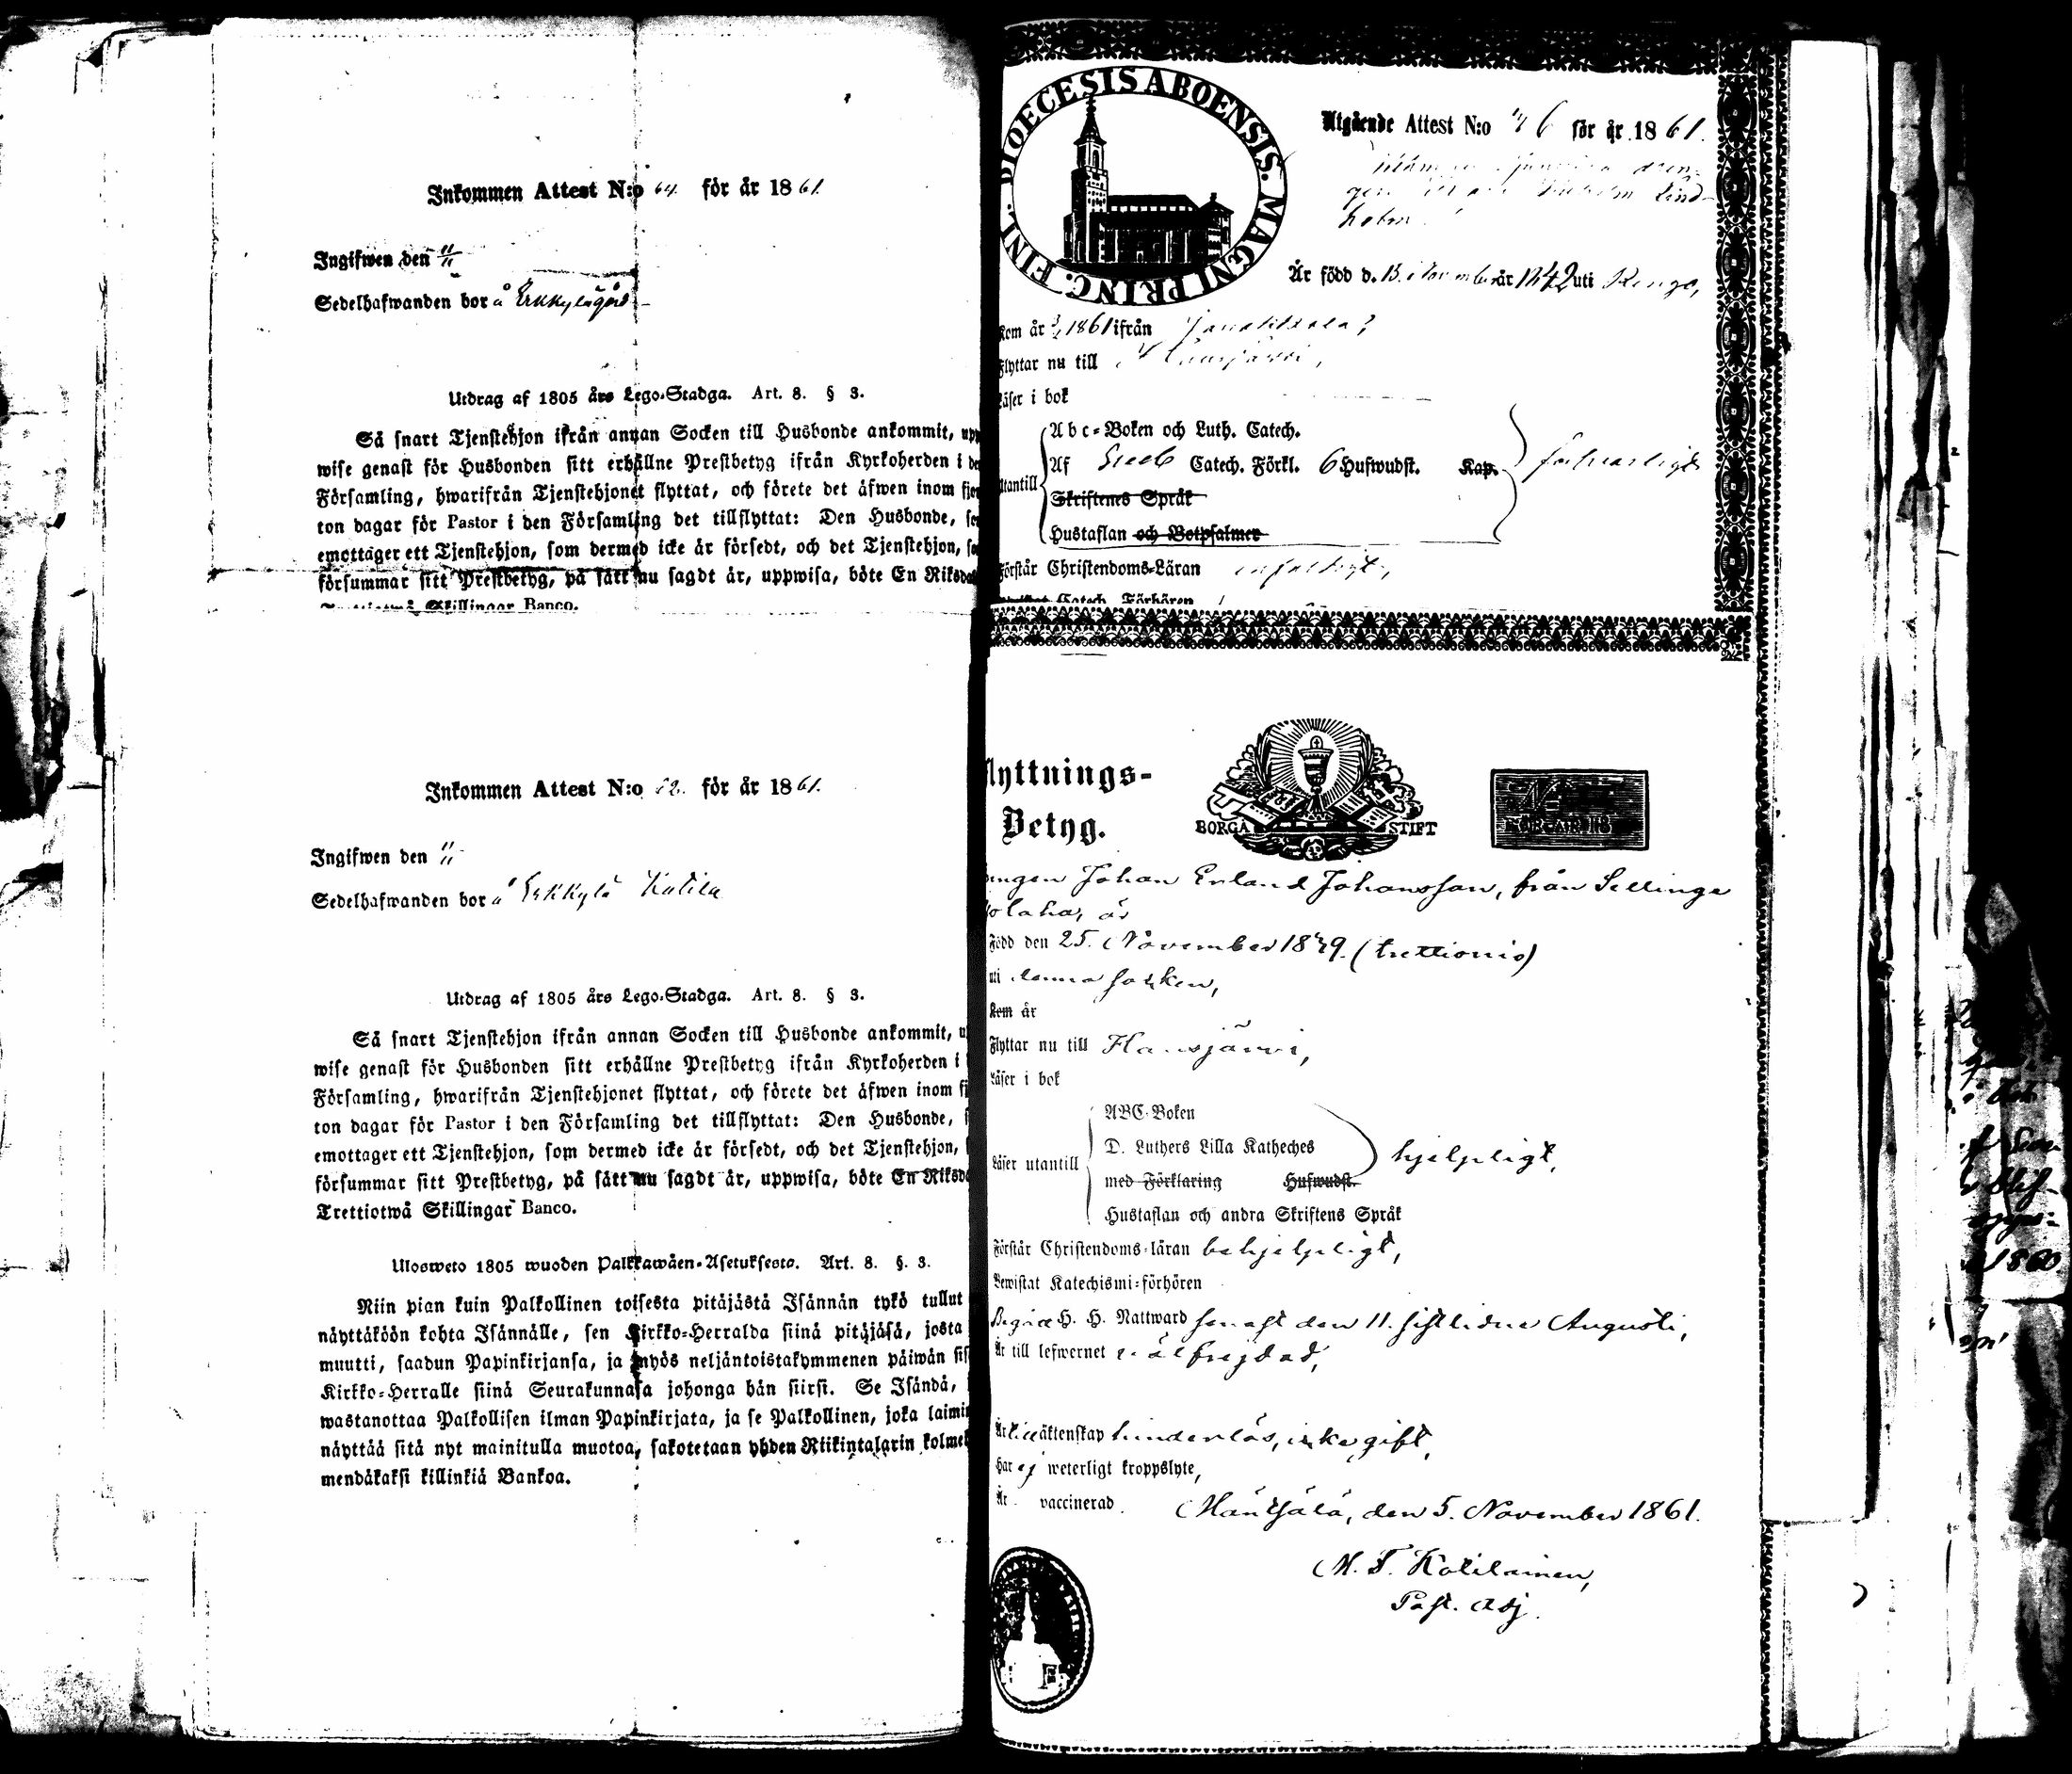 Inkommen Attest N:o 64. för år 1861.
Ingifwen den 11/11
Sedelhafwanden bor å Erkkylägård
Utdrag af 1805 års Lego-Stadga. Art. 8. § 3.
Så snart Tjenstehjon ifrån annan Socken till Husbonde ankommit, upp
wise genast för Husbonden sitt erhållne Prestbetyg ifrån Kyrkoherden i de
Församling, hwarifrån Tjenstehjonet flyttat, och förete det äfwen inom fjor
ton dagar för Pastor i den Församling det tillflyttat: Den Husbonde, so
emottager ett Tjenstehjon, som dermed icke är försedt, och det Tjenstehjon, so
försummar sitt Prestbetyg, på sätt nu sagdt är, uppwisa, böte En Riksda
Trettiotwå Skillingar Banco.
Inkommen Attest N:o för år 1861.
Ingifwen den 11/11
Sedelhafwanden bor å Erkkylä Katila
Utdrag af 1805 års Lego-Stadga. Art. 8. § 3.
Så snart Tjenstehjon ifrån annan Socken till Husbonde ankommit, u
wise genast för Husbonden sitt erhållne Prestbetyg ifrån Kyrkoherden i
Församling, hwarifrån Tjenstehjonet flyttat, och förete det äfwen inom fj
ton dagar för Pastor i den Församling det tillflyttat: Den Husbonde, s
emottager ett Tjenstehjon, som dermed icke är försedt, och det Tjenstehjon,
försummar sitt Prestbetyg, på sätt nu sagdt är, uppwisa, böte En Riksd
Trettiotwå Skillingar Banco.
Ulosweto 1805 wuoden Palkkawäen-Asetuksesta. Art. 8. §. 3.
Niin pian kuin Palkollinen toisesta pitäjästä Isännän tykö tullut
näyttäköön kohta Isännälle, sen Kirkko-Herralda siinä pitäjäsä, josta
muutti, saadun Papinkirjansa, ja myös neljäntoistakymmenen päiwän sis
Kirkko-Herralle siinä Seurakunnasa johonga hän siirsi. Se Isändä,
wastanottaa Palkollisen ilman Papinkirjata, ja se Palkollinen, joka laimin
näyttää sitä nyt mainitulla muotoa, sakotetaan yhden Riikintalarin kolmek
mendäkaksi killinkiä Bankoa.
DIOECESIS ABOENSIS. MAGNI PRINC. FINL.
Utgående Attest N:o 46 för år 1861.
gen Lind-
holm
Är född d. 13. November år 1842 uti Rengo,
Kom år 1861 ifrån Janakkala,
Flyttar nu till Hausjärvi,
Läser i bok
Utantill
Abc-Boken och Luth. Catech.
Af Sveb. Catech. Förkl. 6 Hufwudst. Kap.
försvarligt
Skriftenes Språk
Hustaflan och Botpsalmer
Förstår Christendoms-Läran enfaldigt,
Catech. Förhören
lyttnings-
Betyg.
BORGÅ STIFT
FÖR ÅR 18
ängen Johan Erland Johansson, från Sellinge
olaha, är
Född den 25. November 1839. (trettionio)
uti denna socken,
Kom år
Flyttar nu till Hausjärvi,
Läser i bok
Läser utantill
ABC-Boken
D. Luthers Lilla Katheches
med Förklaring Hufwudst.
Hustaflan och andra Skriftens Språk
hjelpligt,
Förstår Christendoms-läran behjelpligt,
Bewistat Katechismi-förhören
Begick H. H. Nattward senast den 11. sistlidne Augusti,
Är till lefwernet välfrejdad,
Är till äktenskap hinderlös, icke gift,
Har ej weterligt kroppslyte,
Är vaccinerad.
Mäntsälä, den 5. November 1861.
M. T. Kolilainen,
Past. Adj.